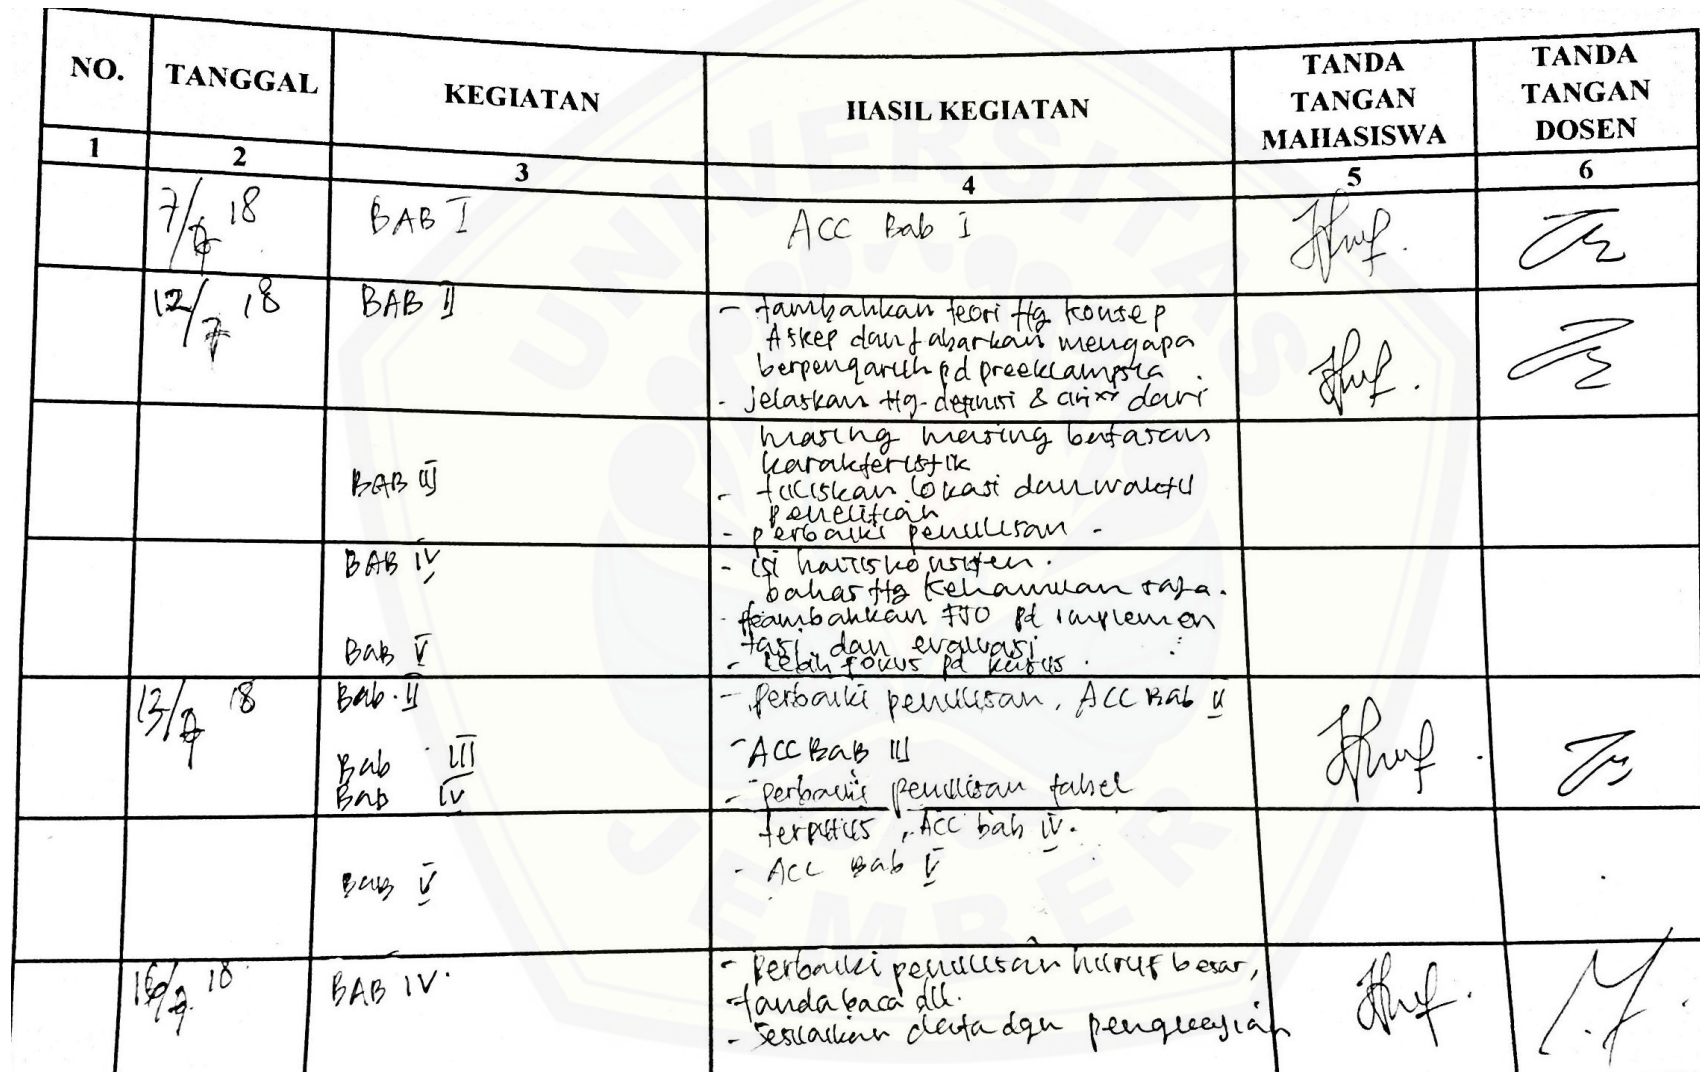 NO. TANGGAL KEGIATAN HASIL KEGIATAN TANDA TANGAN MAHASISWA TANDA TANGAN DOSEN
1 2 3 4 5 6
7/7 18 BAB I ACC Bab I
12/7 18 BAB II - tambahkan teori ttg konsep
Askep dan jabarkan mengapa
berpengaruh pd preeklampsia.
- jelaskan ttg definisi & ciri xx dari
masing masing batasan
karakteristik
BAB III - tuliskan lokasi dan waktu
penelitian
- perbaiki penulisan -
BAB IV - isi harus konsisten.
bahas ttg kehamilan saja.
- tambahkan TTO pd implemen
tasi dan evaluasi
Bab V - lebih fokus pd kasus.
13/7 18 Bab II - perbaiki penulisan, ACC Bab II
Bab III - ACC Bab III
Bab IV - perbaiki penulisan tabel
terputus, ACC bab IV.
Bab V - ACC Bab V
16/7 18 BAB IV. - Perbaiki penulisan huruf besar,
tanda baca dll.
- Sesuaikan data dgn pengkajian
UNIVERSITAS
JEMBER